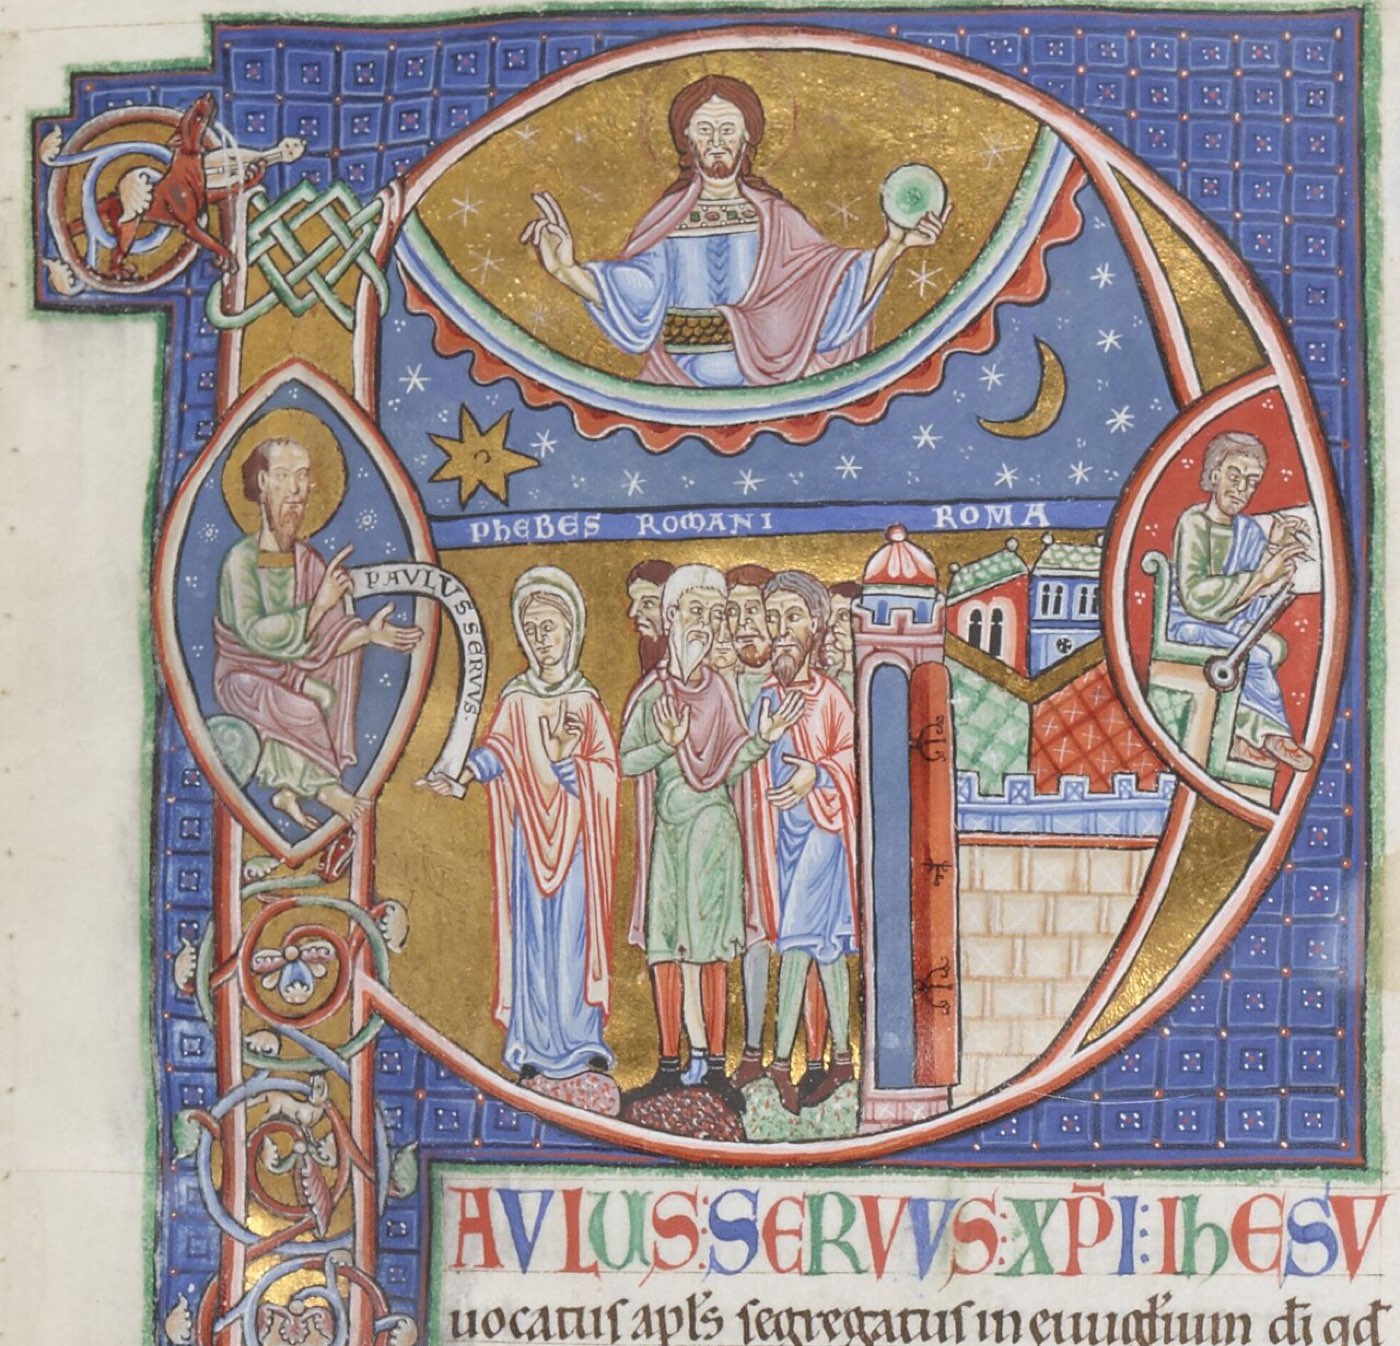 PHEBES ROMANI ROMA
PAVLUS SERVVS.
AVLUS: SERVVS: XP̄I: IHESV
uocatus apl̄s segregatus in euuḡlium dī qd̄